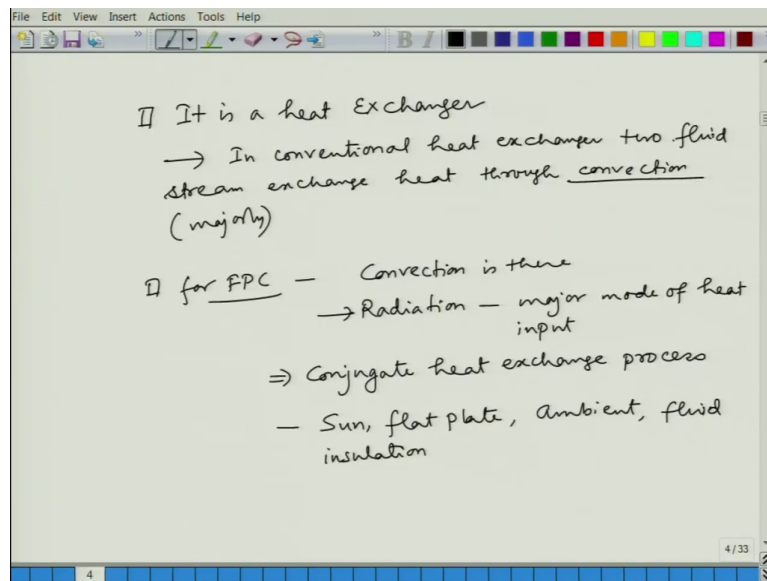 File Edit View Insert Actions Tools Help
B I
It is a heat Exchanger
→ In conventional heat exchanger two fluid
stream exchange heat through convection
(majorly)
for FPC - Convection is there
→ Radiation - major mode of heat
input
⇒ Conjugate heat exchange process
- Sun, flat plate, ambient, fluid
insulation
4/33
4